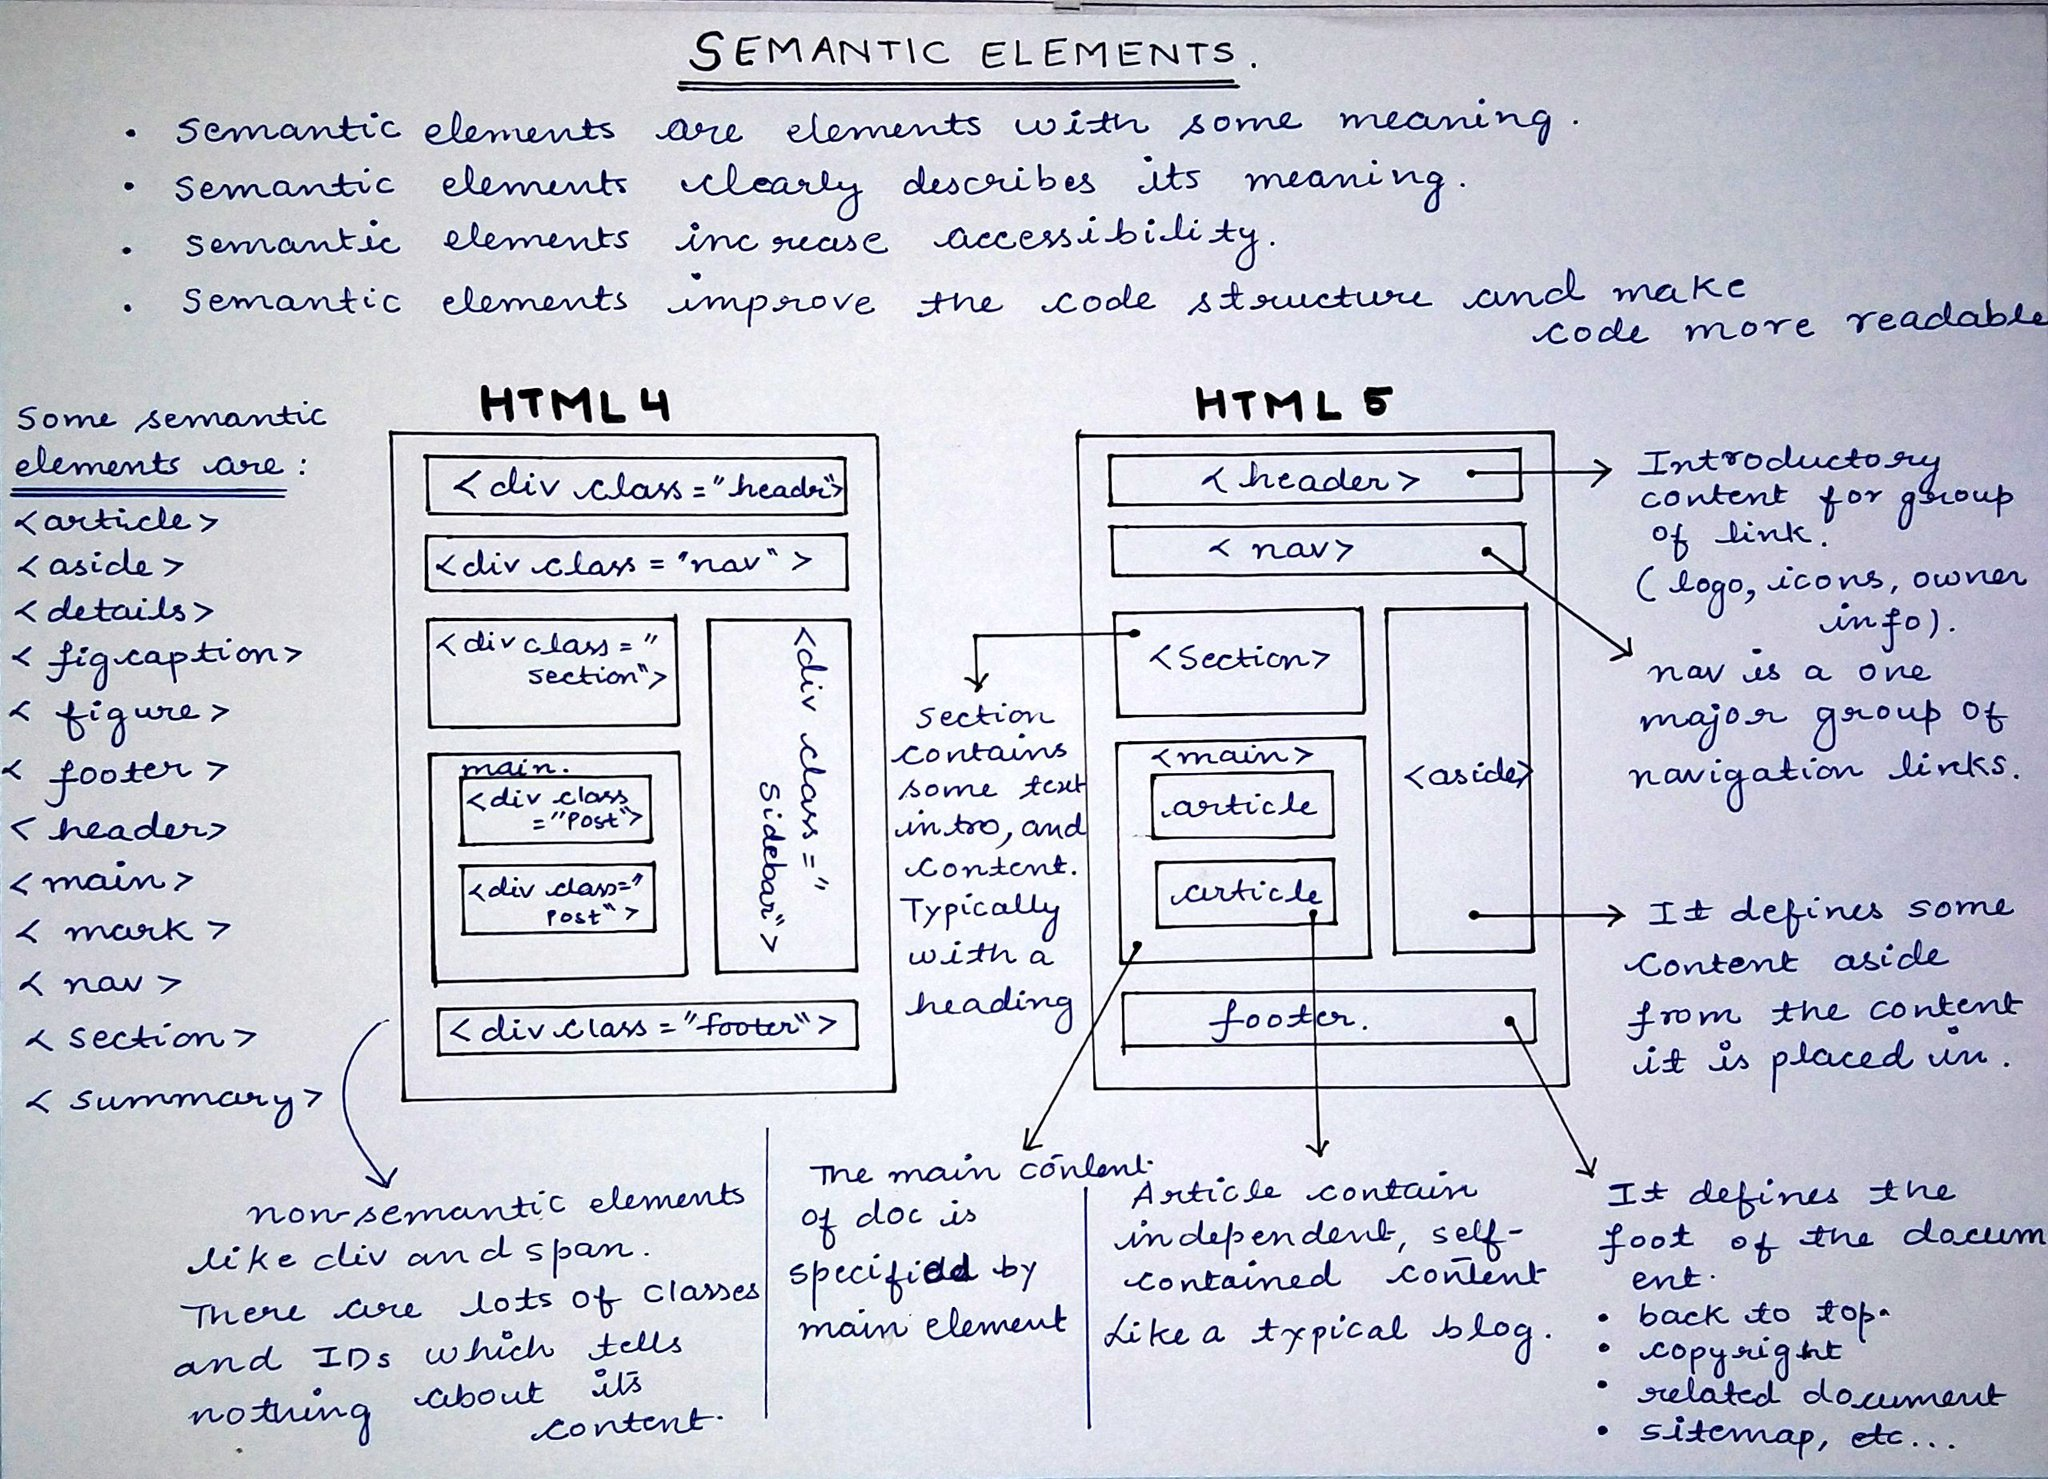 SEMANTIC ELEMENTS.
• Semantic elements are elements with some meaning.
• Semantic elements clearly describes its meaning.
• Semantic elements increase accessibility.
• Semantic elements improve the code structure and make
code more readable
Some semantic
elements are :
<article>
<aside>
<details>
<figcaption>
<figure>
<footer>
<header>
<main>
<mark>
<nav>
<section>
<summary>
HTML 4
<div class="header">
<div class="nav">
<div class="
section">
<div class="
Sidebar">
main.
<div class
="Post">
<div class="
Post">
<div class="footer">
non-semantic elements
like div and span.
There are lots of classes
and IDs which tells
nothing about its
content.
HTML 5
<header>
<nav>
<Section>
<main>
article
article
<aside>
footer.
Introductory
content for group
of link.
(logo, icons, owner
info).
nav is a one
major group of
navigation links.
Section
contains
some text
intro, and
content.
Typically
with a
heading
It defines some
Content aside
from the content
it is placed in.
The main content
of doc is
specified by
main element
Article contain
independent, self-
contained content
Like a typical blog.
It defines the
foot of the docum
ent.
• back to top.
• copyright
• related document
• sitemap, etc...